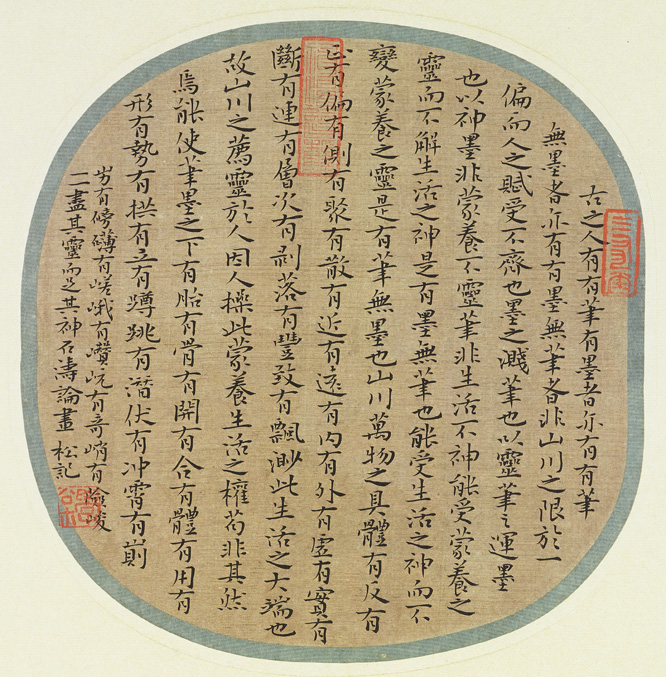 古之人有有筆有墨者亦有有筆
無墨者亦有有墨無筆者非山川之限於一
偏而人之賦受不齊也墨之濺筆也以靈筆之運墨
也以神墨非蒙養不靈筆非生活不神能受蒙養之
靈而不解生活之神是有墨無筆也能受生活之神而不
變蒙養之靈是有筆無墨也山川萬物之具體有反有
正有偏有側有聚有散有近有遠有內有外有虛有實有
斷有連有層次有剥落有豐致有飄渺此生活之大端也
故山川之薦靈於人因人操此蒙養生活之權苟非其然
焉能使筆墨之下有胎有骨有開有合有體有用有
形有勢有拱有立有蹲跳有潛伏有冲霄有崱
屴有磅礴有嵯峨有巑岏有奇峭有險峻
一一盡其靈而足其神石濤論畫 松記